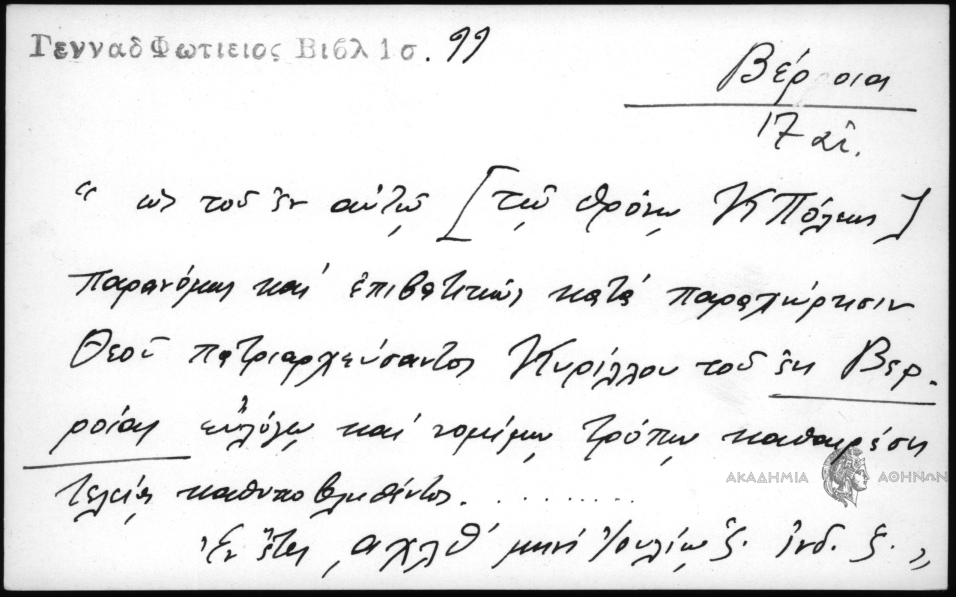 Γενναδ Φωτιειος Βιβλ 1 σ. 99
Βέρροιαι
17 αἰ.
“ ὡς τοῦ ἐν αὐτῷ [τῷ θρόνῳ Κπόλεως]
παρανόμως καὶ ἐπιβατικῶς κατὰ παραχώρησιν
Θεοῦ πατριαρχεύσαντος Κυρίλλου τοῦ ἐκ Βερ-
ροίας εὐλόγῳ καὶ νομίμῳ τρόπῳ καθαιρέσει
τελείᾳ καθυποβληθέντος. . . . . . . . . .
Ἐν ἔτει ͵αχλθʹ μηνὶ Ἰουλίῳ ζ. ἰνδ. ζ. „
ΑΚΑΔΗΜΙΑ ΑΘΗΝΩΝ